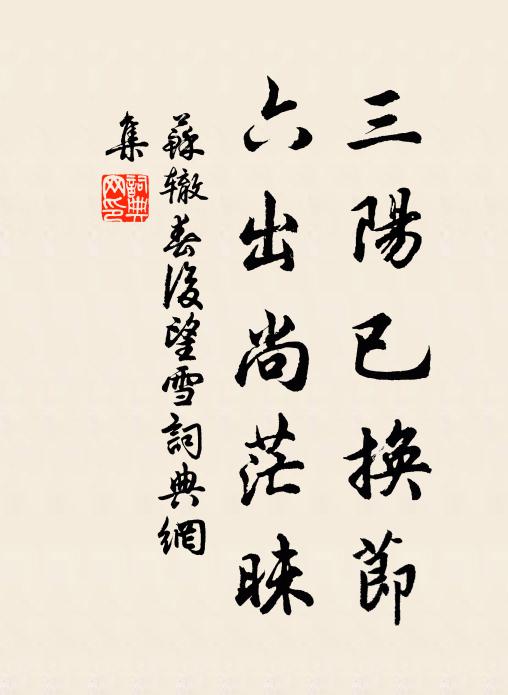 三陽已換節
六出尚茫昧
蘇辙春後望雪詞典網
集
詞典
网印